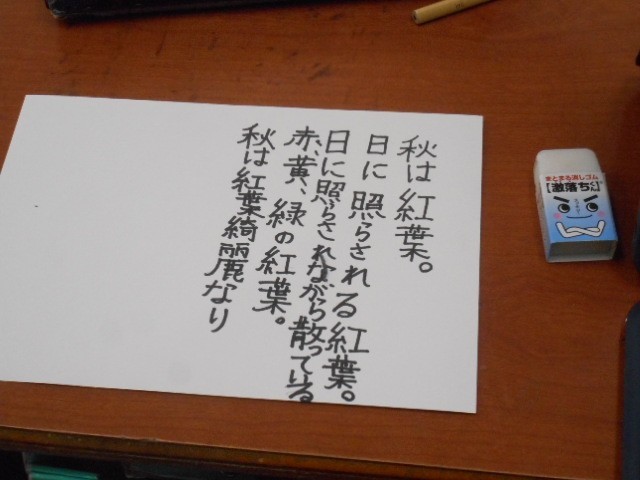 秋は紅葉。
日に照らされる紅葉。
日に照らされながら散っている
赤、黄、緑の紅葉。
秋は紅葉綺麗なり
まとまる消しゴム
【激落ちくん】